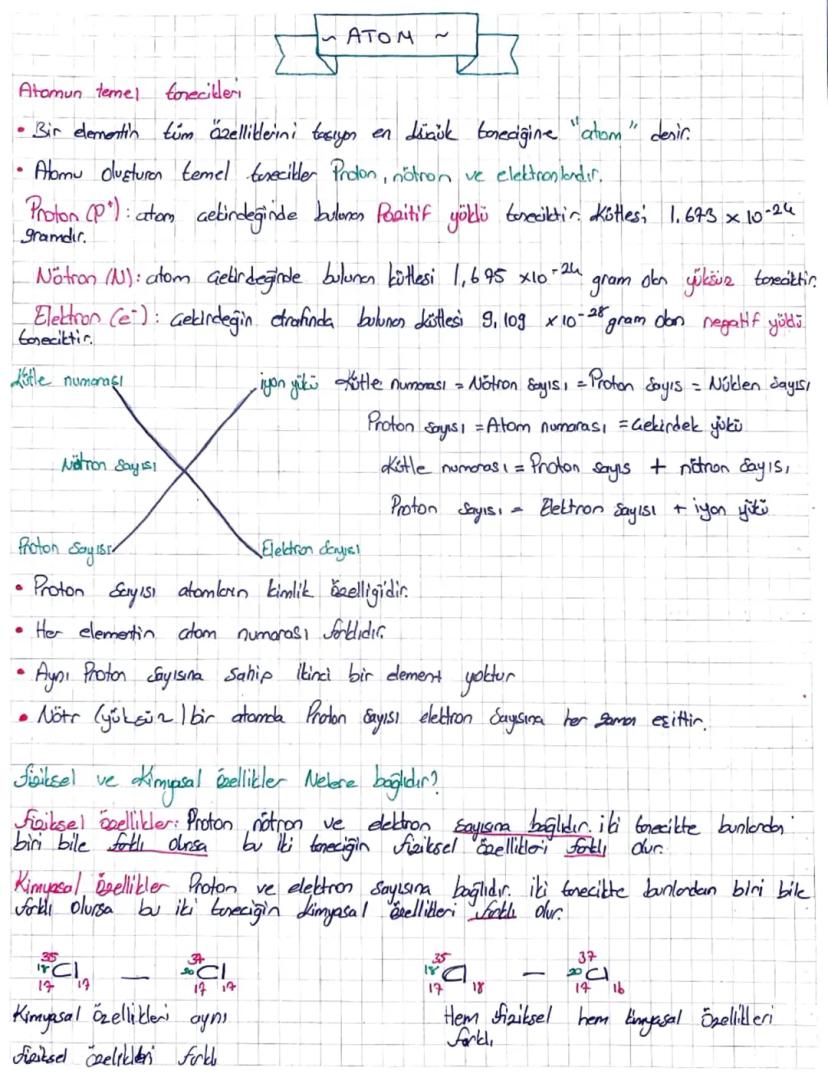 ~ ATOM ~
Atomun temel tanecikleri
• Bir elementin tüm özelliklerini taşıyan en küçük taneciğine "atom" denir.
• Atomu oluşturan temel tanecikler Proton, nötron ve elektronlardır.
Proton (p⁺): atom çekirdeğinde bulunan Pozitif yüklü taneciktir. Kütlesi 1,673 x 10⁻²⁴
gramdır.
Nötron (N): atom çekirdeğinde bulunan kütlesi 1,695 x10⁻²⁴ gram olan yüksüz taneciktir.
Elektron (e⁻): çekirdeğin etrafında bulunan kütlesi 9,109 x10⁻²⁸ gram olan negatif yüklü
taneciktir.
Kütle numarası iyon yükü Kütle numarası = Nötron sayısı = Proton sayıs = Nüklen sayısı
Proton sayısı = Atom numarası = çekirdek yükü
Nötron sayısı Kütle numarası = Proton sayıs + nötron sayısı
Proton sayısı = Elektron sayısı + iyon yükü
Proton sayısı Elektron sayısı
• Proton sayısı atomların kimlik özelligi'dir.
• Her elementin atom numarası farklıdır.
• Aynı Proton sayısına sahip ikinci bir element yoktur
• Nötr (yüksüz) bir atomda Proton sayısı elektron sayısına her zaman eşittir.
fiziksel ve kimyasal özellikler Nelere bağlıdır?
fiziksel özellikler: Proton nötron ve elektron sayısına bağlıdır. iki tanecikte bunlardan
biri bile farklı olursa bu iki taneciğin fiziksel özellikleri farklı olur.
Kimyasal özellikler Proton ve elektron sayısına bağlıdır. iki tanecikte bunlardan biri bile
farklı olursa bu iki taneciğin kimyasal özellikleri farklı olur.
35 37 35 37
18 Cl — 20 Cl 18 Cl — 20 Cl
17 17 17 17 17 18 17 16
Kimyasal özellikleri aynı Hem fiziksel hem kimyasal özellikleri
farklı
fiziksel özellikleri farklı